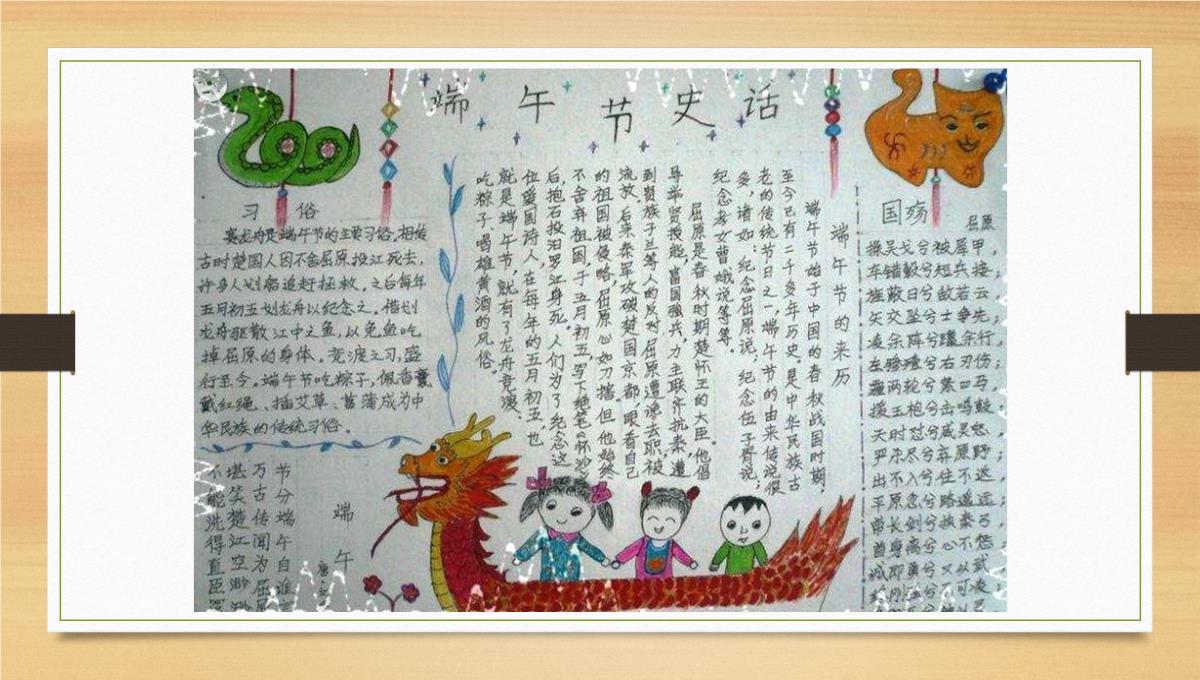 端午节史话
习俗
赛龙舟是端午节的主要习俗。相传
古时楚国人因不舍屈原投江死去,
许多人划船追赶拯救。之后每年
五月初五划龙舟以纪念之。借划
龙舟驱散江中之鱼,以免鱼吃
掉屈原的身体。竞渡之习,盛
行至今。端午节吃粽子,佩香囊
戴红绳、插艾草、菖蒲成为中
华民族的传统习俗。
端午节的来历
端午节始于中国的春秋战国时期,
至今已有二千多年历史。是中华民族古
老的传统节日之一,端午节的由来传说很
多,诸如:纪念屈原说,纪念伍子胥说;
纪念孝女曹娥说等等。
屈原是春秋时期楚怀王的大臣。他倡
导举贤授能,富国强兵,力主联齐抗秦,遭
到贵族子兰等人的反对,屈原遭谗去职,被
流放。后来秦军攻破楚国京都,眼看自己
的祖国被侵略,屈原心如刀割,但他始终
不舍弃祖国,于五月初五,写下绝笔《怀沙》
后,抱石投汨罗江身死,人们为了纪念这
位爱国诗人,在每年的五月初五,也
就是端午节,就有了龙舟竞渡、
吃粽子、喝雄黄酒的风俗。
国殇
屈原
操吴戈兮被犀甲,
车错毂兮短兵接;
旌蔽日兮敌若云,
矢交坠兮士争先;
凌余阵兮躐余行,
左骖殪兮右刃伤;
霾两轮兮絷四马,
援玉枹兮击鸣鼓
天时怼兮威灵怒,
严杀尽兮弃原野;
出不入兮往不返,
平原忽兮路遥远;
带长剑兮挟秦弓,
首身离兮心不惩
诚即勇兮又以武
端午
唐
节分端午自谁
万古传闻为屈
堪笑楚江空渺
不能洗得直臣冤